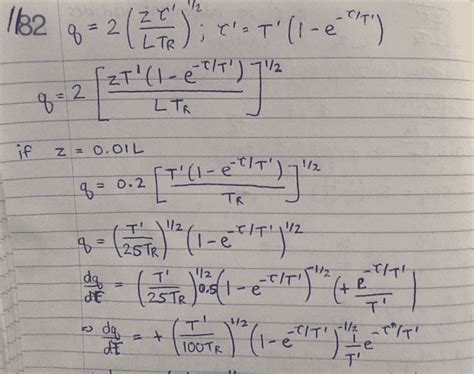 1182 q = 2 (zτ'/LT_R)^1/2 ; τ' = T' (1 - e^-τ/T')
q = 2 [zT'(1 - e^-τ/T')/LT_R]^1/2
if z = 0.01L
q = 0.2 [T'(1 - e^-τ/T')/T_R]^1/2
q = (T'/25T_R)^1/2 (1 - e^-τ/T')^1/2
dq/dt = (T'/25T_R)^1/2 0.5 (1 - e^-τ/T')^-1/2 (+ e^-τ/T'/T')
⇒ dq/dt = + (T'/100T_R)^1/2 (1 - e^-τ/T')^-1/2 1/T' e^-τ"/T'